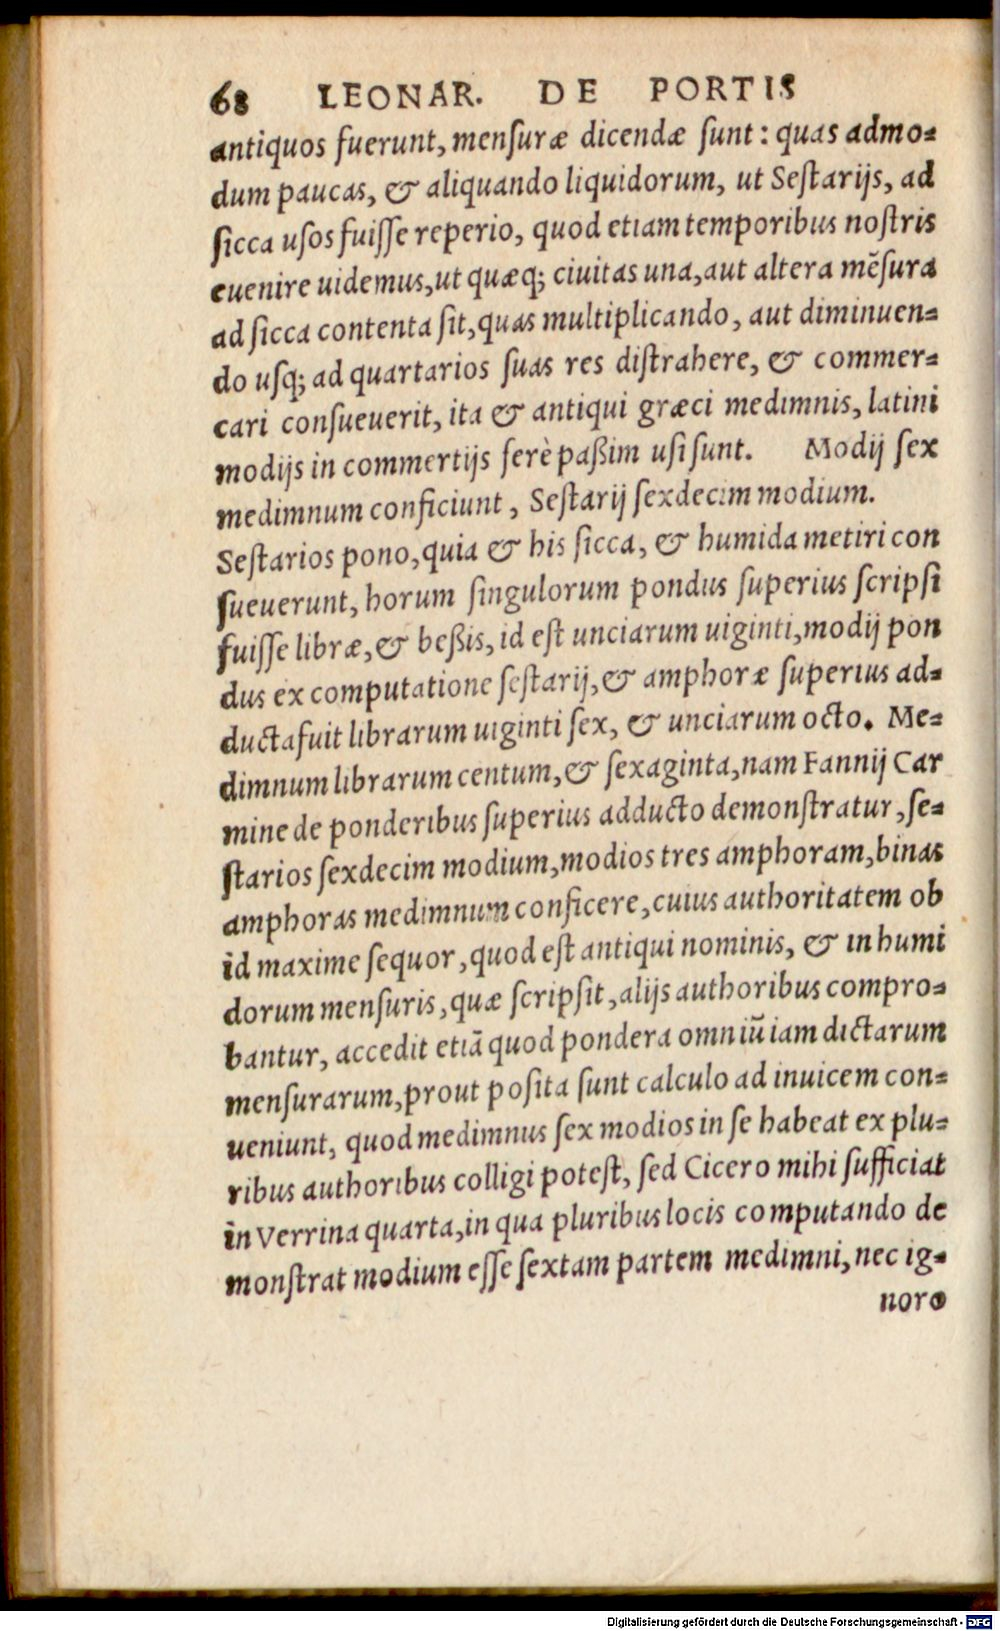 68 LEONAR. DE PORTIS
antiquos fuerunt, menſuræ dicendæ ſunt: quas admo-
dum paucas, & aliquando liquidorum, ut Seſtarijs, ad
ſicca uſos fuiſſe reperio, quod etiam temporibus noſtris
euenire uidemus, ut quæq; ciuitas una, aut altera mẽſura
ad ſicca contenta ſit, quas multiplicando, aut diminuen-
do uſq; ad quartarios ſuas res diſtrahere, & commer-
cari conſueuerit, ita & antiqui græci medimnis, latini
modijs in commertijs ferè paßim uſi ſunt. Modij ſex
medimnum conficiunt, Seſtarij ſexdecim modium.
Seſtarios pono, quia & his ſicca, & humida metiri con
ſueuerunt, horum ſingulorum pondus ſuperius ſcripſi
fuiſſe libræ, & beßis, id eſt unciarum uiginti, modij pon
dus ex computatione ſeſtarij, & amphoræ ſuperius ad-
ducta fuit librarum uiginti ſex, & unciarum octo. Me-
dimnum librarum centum, & ſexaginta, nam Fannij Car
mine de ponderibus ſuperius adducto demonſtratur, ſe-
ſtarios ſexdecim modium, modios tres amphoram, binas
amphoras medimnum conficere, cuius authoritatem ob
id maxime ſequor, quod eſt antiqui nominis, & in humi
dorum menſuris, quæ ſcripſit, alijs authoribus compro-
bantur, accedit etiã quod pondera omniũ iam dictarum
menſurarum, prout poſita ſunt calculo ad inuicem con-
ueniunt, quod medimnus ſex modios in ſe habeat ex plu-
ribus authoribus colligi poteſt, ſed Cicero mihi ſufficiat
in Verrina quarta, in qua pluribus locis computando de
monſtrat modium eſſe ſextam partem medimni, nec ig-
noro
Digitalisierung gefördert durch die Deutsche Forschungsgemeinschaft - DFG